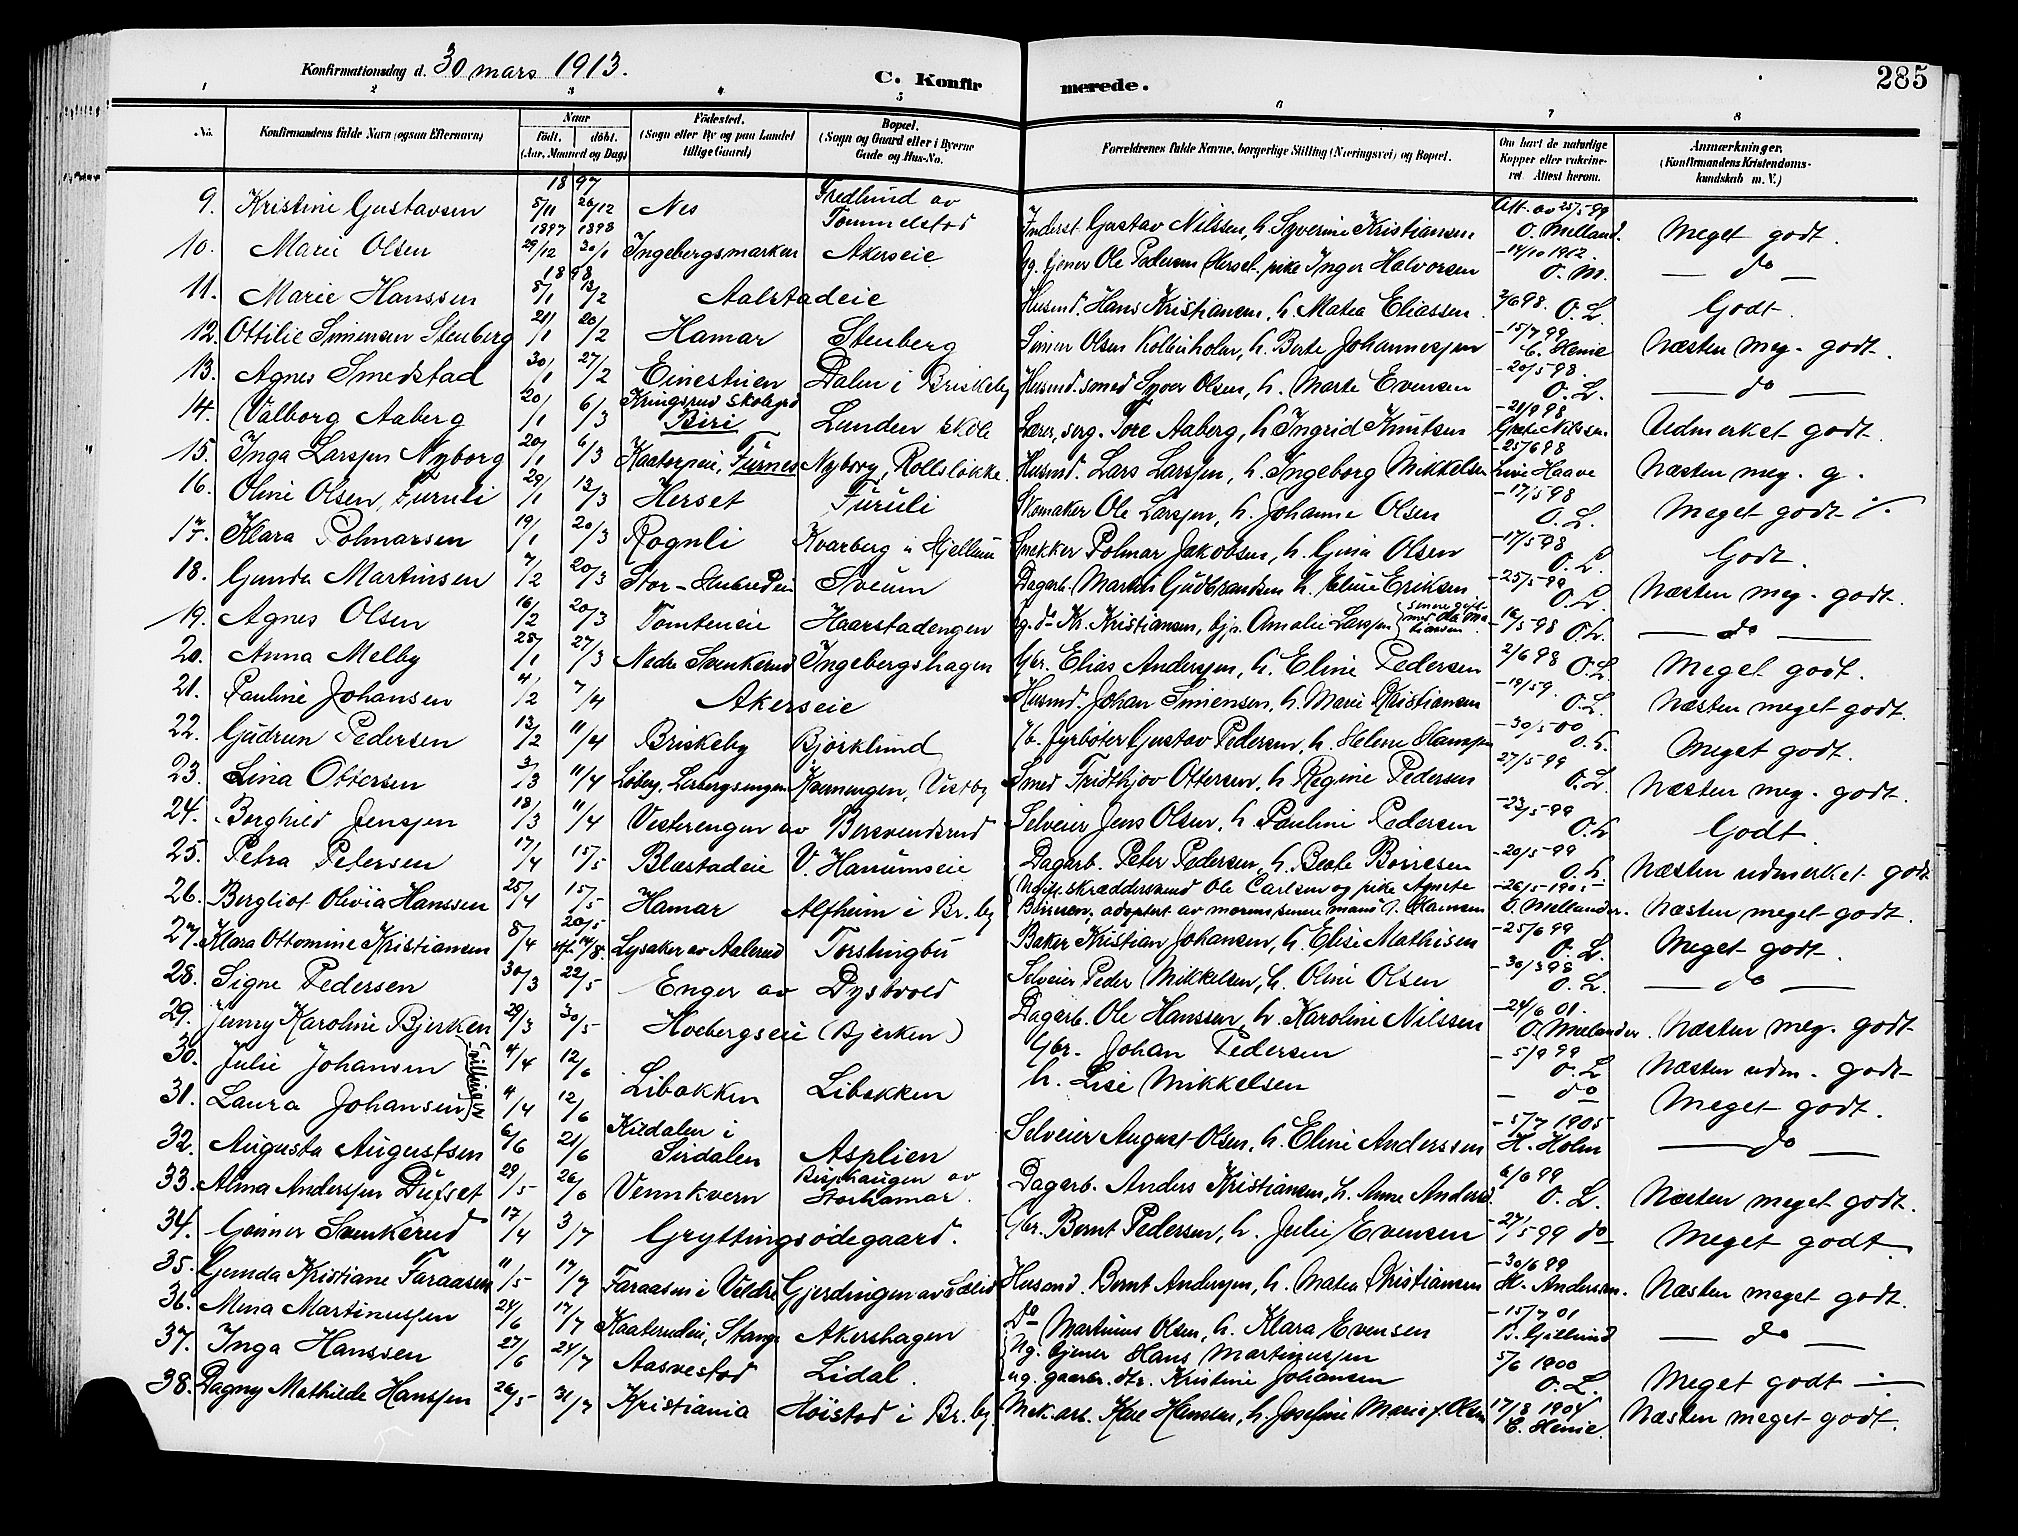 285
Konfirmationsdag d. 30 mars 1913.
C. Konfir merede.
1 2 3 4 5 6 7 8
No. Konfirmandens fulde Navn (ogsaa Efternavn) Naar født, døbt. (Aar, Maaned og Dag) Fødested. (Sogn eller By og paa Landet tillige Gaard) Bopæl. (Sogn og Gaard eller i Byerne Gade og Hus-No. Forældrenes fulde Navne, borgerlige Stilling (Næringsvei) og Bopæl. Om havt de naturlige Kopper eller vakcineret. Attest herom. Anmærkninger. (Konfirmandens Kristendomskundskab m. V.)
1897
9. Kristine Gustavsen 5/11 26/12 Nes Fredlund av Tommelstad Inderst Gustav Nilssen, h. Syverine Kristiansen Att. av 25/5 99 O. Melland. Meget godt.
1897 1898
10. Marie Olsen 29/12 30/1 Ingebergsmarken Akerseie Ug. tjener Ole Pedersen Herset, pike Inger Halvorsen -14/10 1912. O. M. — do —
1898
11. Marie Hanssen 8/1 13/2 Aalstadeie Husmd. Hans Kristiansen, h. Matea Eliassen 3/6 98. O. L. Godt.
12. Ottilie Simensen Stenberg 21/1 20/2 Hamar Stenberg Simen Olsen Kolbuholm, h. Berte Johannesjen -15/7 99 C. Henie Næsten meg. godt.
13. Agnes Smedstad 30/1 27/2 Einestuen Dalen i Briskeby Husmd. smed Syver Olsen, h. Marte Evensen -20/5 98. O. L. — do —
14. Valborg Aaberg 20/1 6/3 Kringsrud skolegrd Biri Lunden skole Lærer, serg. Tore Aaberg, h. Ingrid Knutsen -21/9 98 Udmerket godt.
15. Inga Larsjen Nyborg 20/1 6/3 Kaatorpeie, Furnes Nyborg, Rollsløkke. Husmd. Lars Larsjen, h. Ingeborg Mikkelsen -25/6 98 Line Haave Næsten meg. g.
16. Oline Olsen, Furuli 29/1 13/3 Herset Furuli Skomaker Ole Larsjen, h. Johanne Olsen -17/5 98 O. L. Meget godt
17. Klara Polmarsen 19/1 20/3 Rognli Kvarberg u Hjellum Snekker Polmar Jakobsen, h. Gina Olsen -17/5 98 O. L. Godt.
18. Gunda Martinsen 7/2 20/3 Sveum Dagarb. Martin Gudbrandsen h. Eline Eriksen -25/5-99 O. L. Næsten meg. godt.
19. Agnes Olsen 16/2 20/3 Tomteneie Haarstadengen Ug. do Kr. Kristiansen, Amalie Larsjen -16/5-98 O. L. — do —
20. Anna Melby 28/1 27/3 Nedre Svenkerud Ingebergshagen Gbr. Elias Andersjen, h. Eline Pedersen 2/6 98 O. L. Meget godt.
21. Pauline Johansen 4/2 7/4 Akerseie Husmd. Johan Simensen, h. Marie Kristiansen -19/5 9. O. L. Næsten meget godt.
22. Gudrun Pedersen 13/2 11/4 Briskeby Bjørklund Fyrbøter Gustav Pedersen, h. Helene Hansjen -30/5-00 O. L. Meget godt.
23. Lina Ottersen 3/3 11/4 Løbey, Lerbergsengen Kverneengen, Vestby Smed Fridthjov Ottersen, h. Regine Pedersen 27/5-99 O. L. Næsten meg. godt.
24. Borghild Jensjen 18/3 11/4 Vesterengen av Bersvendsrud Selveier Jens Olsen, h. Pauline Pedersen -23/5-99 O. L. Godt.
25. Petra Petersen 17/4 15/5 Blæstadeie V. Hanumseie Dagarb. Peter Pedersen, h. Beate Børresen -20/5-99 O. L. Næsten udmerket godt
26. Bergliot Olivia Hanssen 25/4 15/5 Hamar Alfheim i Br. by Ugift skræddersvend Ole Carlsen og pike Agnete Børresen, adoptert av morens senere mand J. Hansen -26/5-1905- O. Mellander. Næsten meget godt.
27. Klara Ottomine Kristiansen 8/4 20/5 14/8. Lysaker av Aalerud Torstingbu Baker Kristian Johansen, h. Elise Mathisen -25/6 99 O. L. Meget godt.
28. Signe Pedersen 30/3 22/5 Enger av Dystvold Selveier Peder Mikkelsen, h. Oline Olsen -30/3 98 O. L. — do —
29. Jenny Karoline Bjerken 29/3 30/5 Hvebergseie (Bjerken) Dagarb. Ole Hanssen, h. Karoline Nilssen -24/6 01. O. Mellander. Næsten meg. godt
30. Julie Johansen 4/4 12/6 Gbr. Johan Pedersen -5/9 99 O. L Næsten udm. godt
31. Laura Johansen (Tvillinger) 4/4 12/6 Libakken Libakken h. Lise Mikkelsen — do Meget godt.
32. Augusta Augustsen 6/6 21/6 Kildalen i Sirdalen Asplien Selveier August Olsen, h. Eline Anderssen -5/7 1905 H. Holm — do —
33. Alma Andersjen Dufset 29/5- 26/6 Vennkvern Bisphaugen av Storhamar. Dagarb. Anders Kristiansen, h. Anne Anders. 6/6 99 O. L. Næsten meget godt.
34. Gunner Svenkerud 17/4 3/7 Gryttingsødegaard. Gbr. Bernt Pedersen, h. Julie Evensen -27/5 99 do Meget godt
35. Gunda Kristiane Faraasen 11/5- 17/7 Faraasen i Veldre Gjerdringen av Sælid Husmd. Bernt Andersjen, h. Matea Kristiansen -30/6 99 M. Andersen. Næsten meget godt.
36. Mina Martinusjen 24/6 17/7 Kaaterudeie, Stange Akershagen do Martinus Olsen, h. Klara Evensen -15/7 01 — do —
37. Inga Hanssen 27/6 24/7 Aasvestad Lidal. Ug. tjener Hans Martinusjen ug. gaarbr. dtr. Kristine Johansen 5/6 1900 O. L. Meget godt
38. Dagny Mathilde Hansjen 26/5- 31/7 Kristiania Høistad i Br. by Mek. arb. Kare Hansen, h. Josefine Marie f. Olsen 17/8 1904 C. Henie. Næsten meget godt.